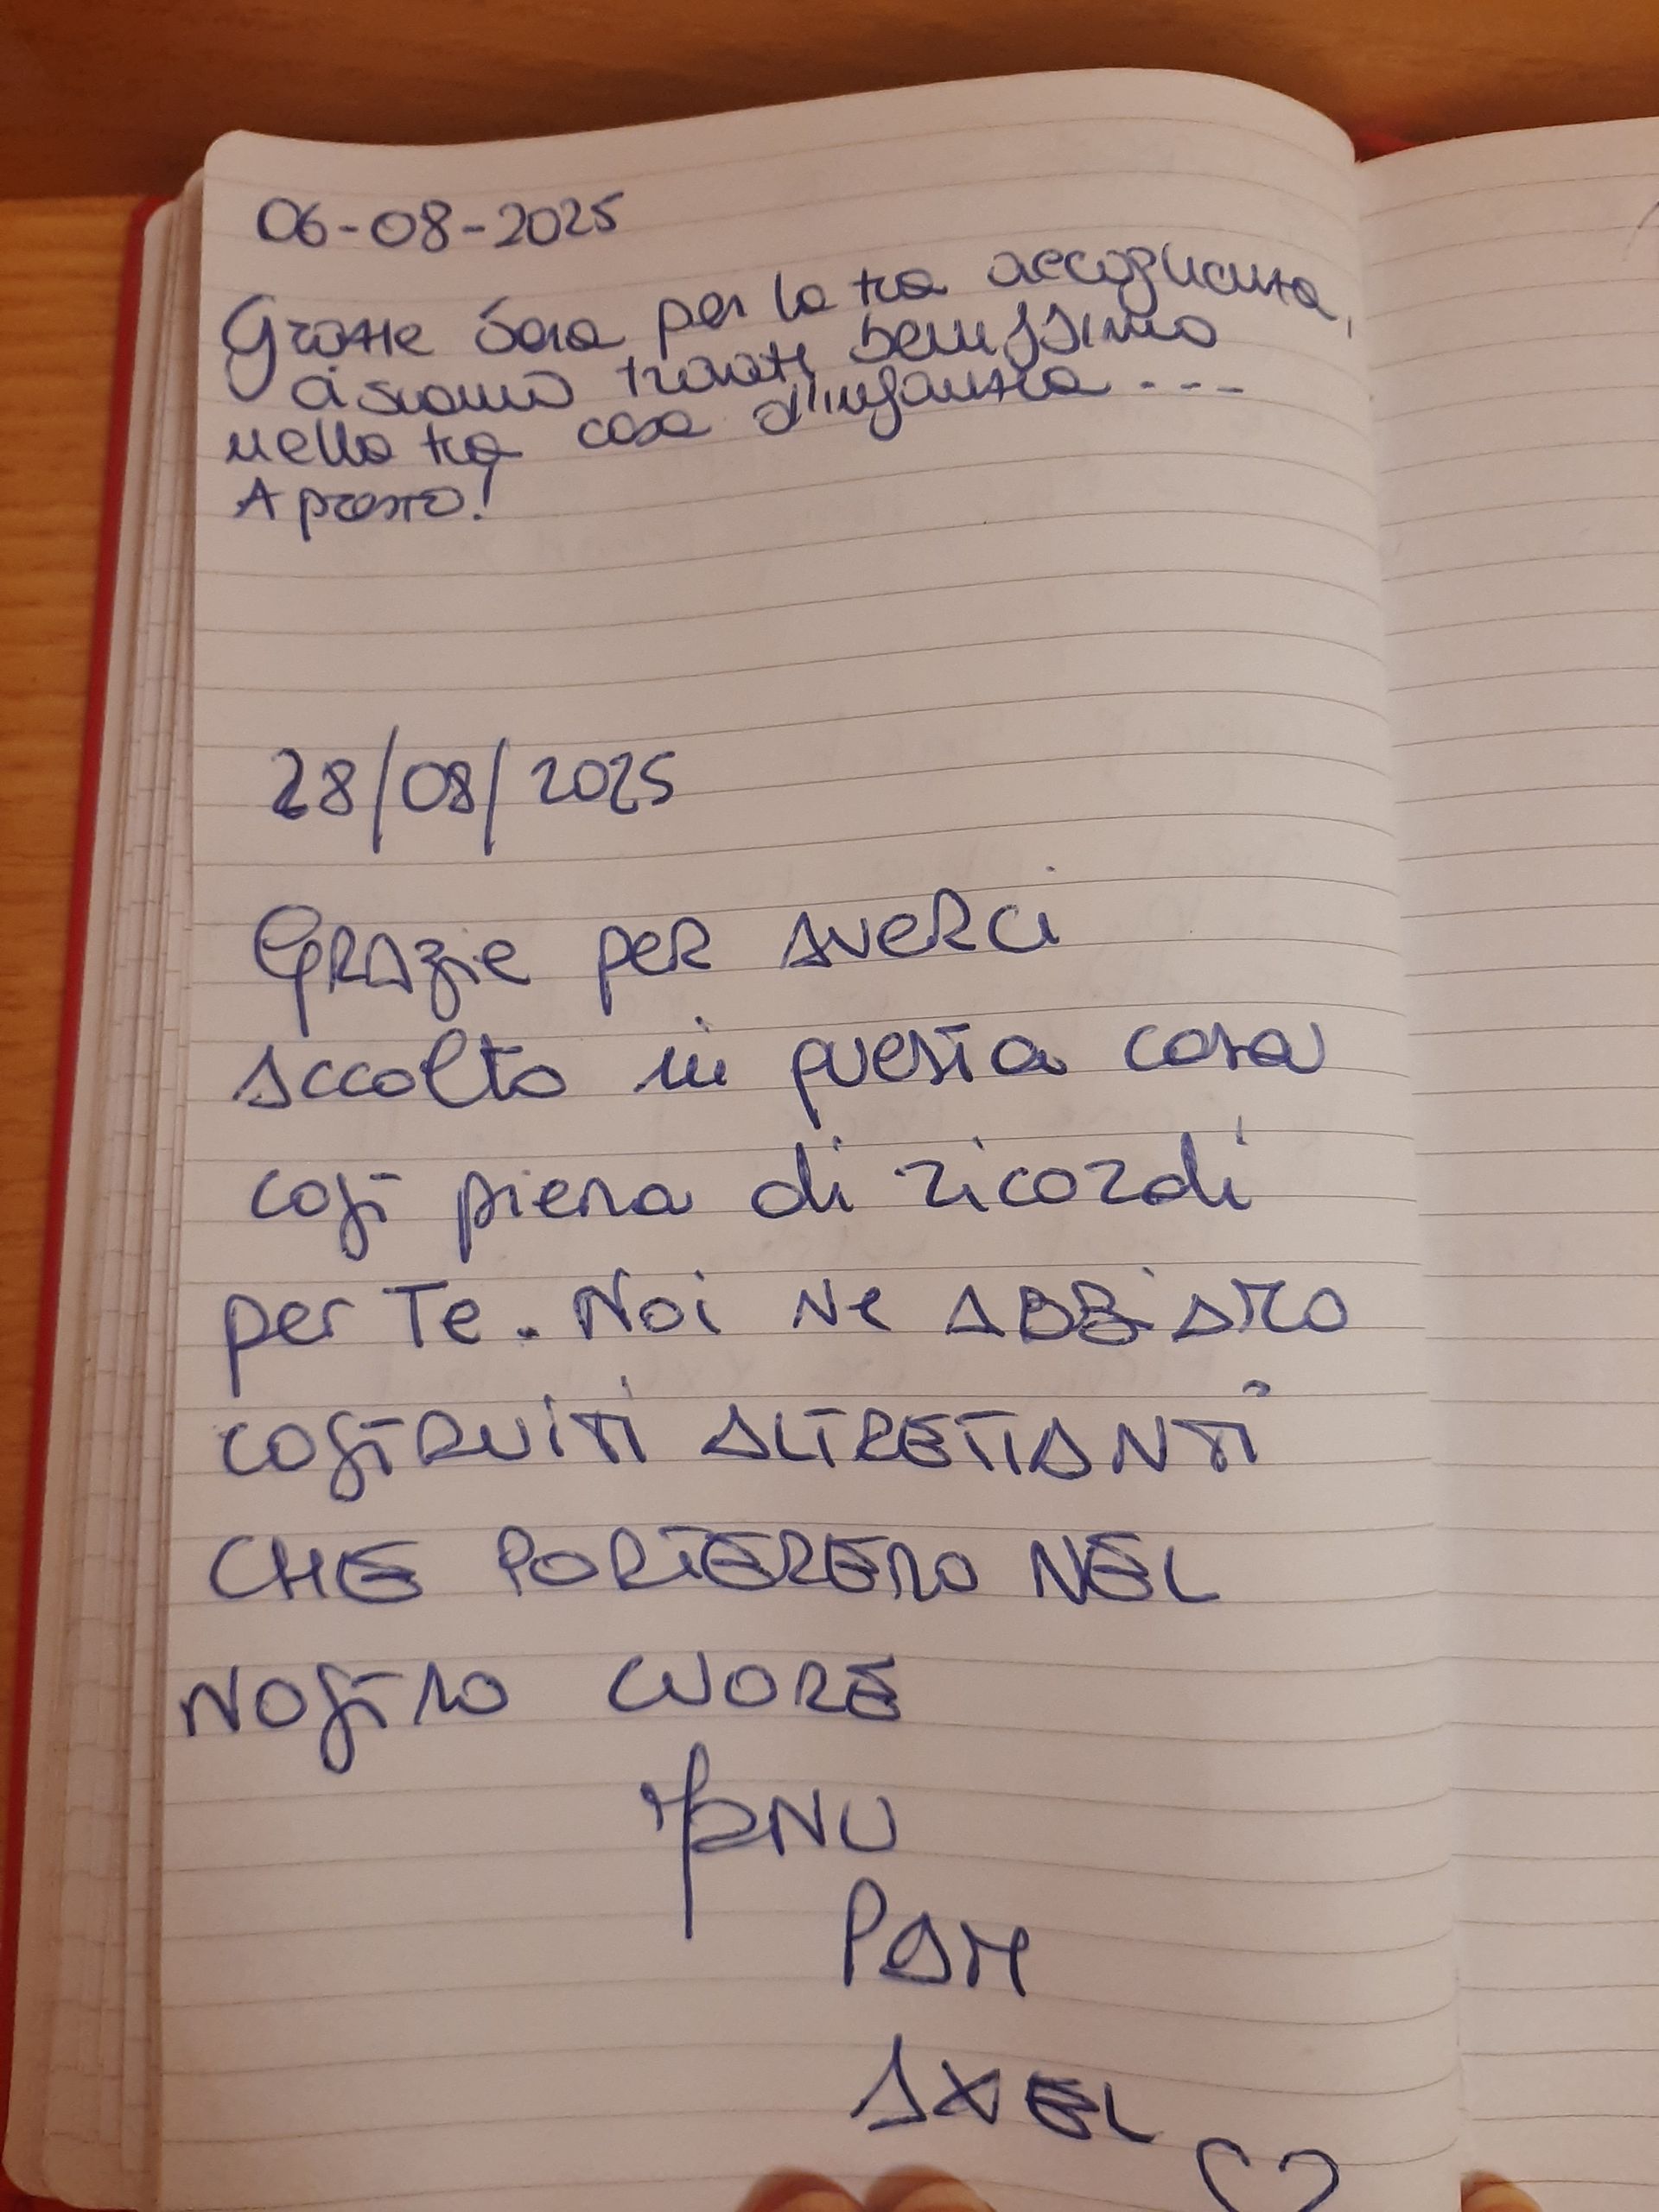 06-08-2025
Grazie Sara per la tua accoglienza,
ci siamo trovati benissimo
nella tua casa d'infanzia ---
A presto!
28/08/2025
GRAZie peR AVeRCi
Accolto in questa casa
così piena di ricordi
per Te. Noi Ne ABBiAMO
COSTRUITI ALTRETTANTI
CHE PORTEREMO NEL
NOSTRO CUORE
MANU
PAM
AXEL